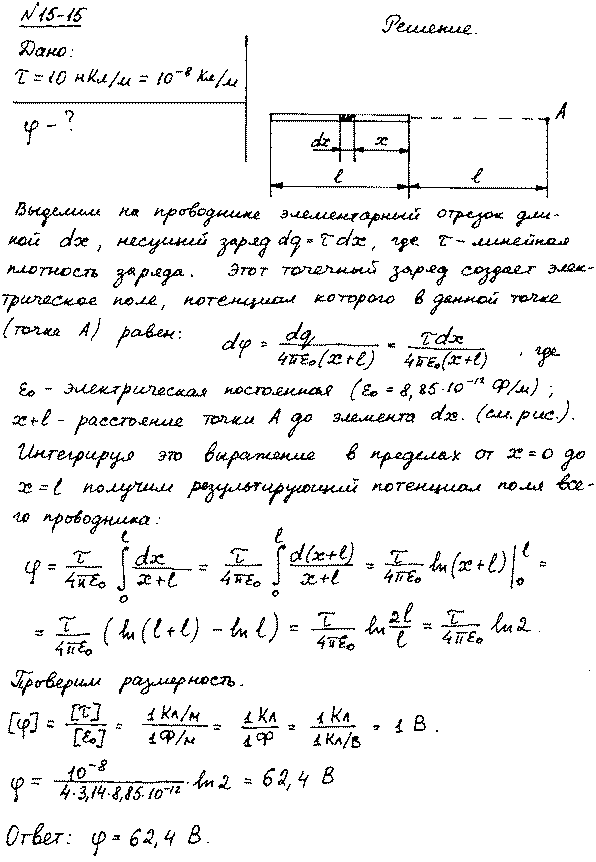 №15-15
Решение.
Дано:
τ = 10 нКл/м = 10⁻⁸ Кл/м
φ - ?
A
dx x
l l
Выделим на проводнике элементарный отрезок дли-
ной dx, несущий заряд dq = τdx, где τ - линейная
плотность заряда. Этот точечный заряд создает элек-
трическое поле, потенциал которого в данной точке
(точке А) равен: dφ = dq/4πε₀(x+l) = τdx/4πε₀(x+l), где
ε₀ - электрическая постоянная (ε₀ = 8,85·10⁻¹² Ф/м);
x+l - расстояние точки А до элемента dx. (см. рис.).
Интегрируя это выражение в пределах от x=0 до
x=l получим результирующий потенциал поля все-
го проводника:
φ = τ/4πε₀ ∫₀ˡ dx/x+l = τ/4πε₀ ∫₀ˡ d(x+l)/x+l = τ/4πε₀ ln(x+l)|₀ˡ =
= τ/4πε₀ (ln(l+l) - ln l) = τ/4πε₀ ln 2l/l = τ/4πε₀ ln2.
Проверим размерность.
[φ] = [τ]/[ε₀] = 1 Кл/м/1Ф/м = 1 Кл/1Ф = 1 Кл/1 Кл/В = 1 В.
φ = 10⁻⁸/4·3,14·8,85·10⁻¹² · ln2 = 62,4 В
Ответ: φ = 62,4 В.